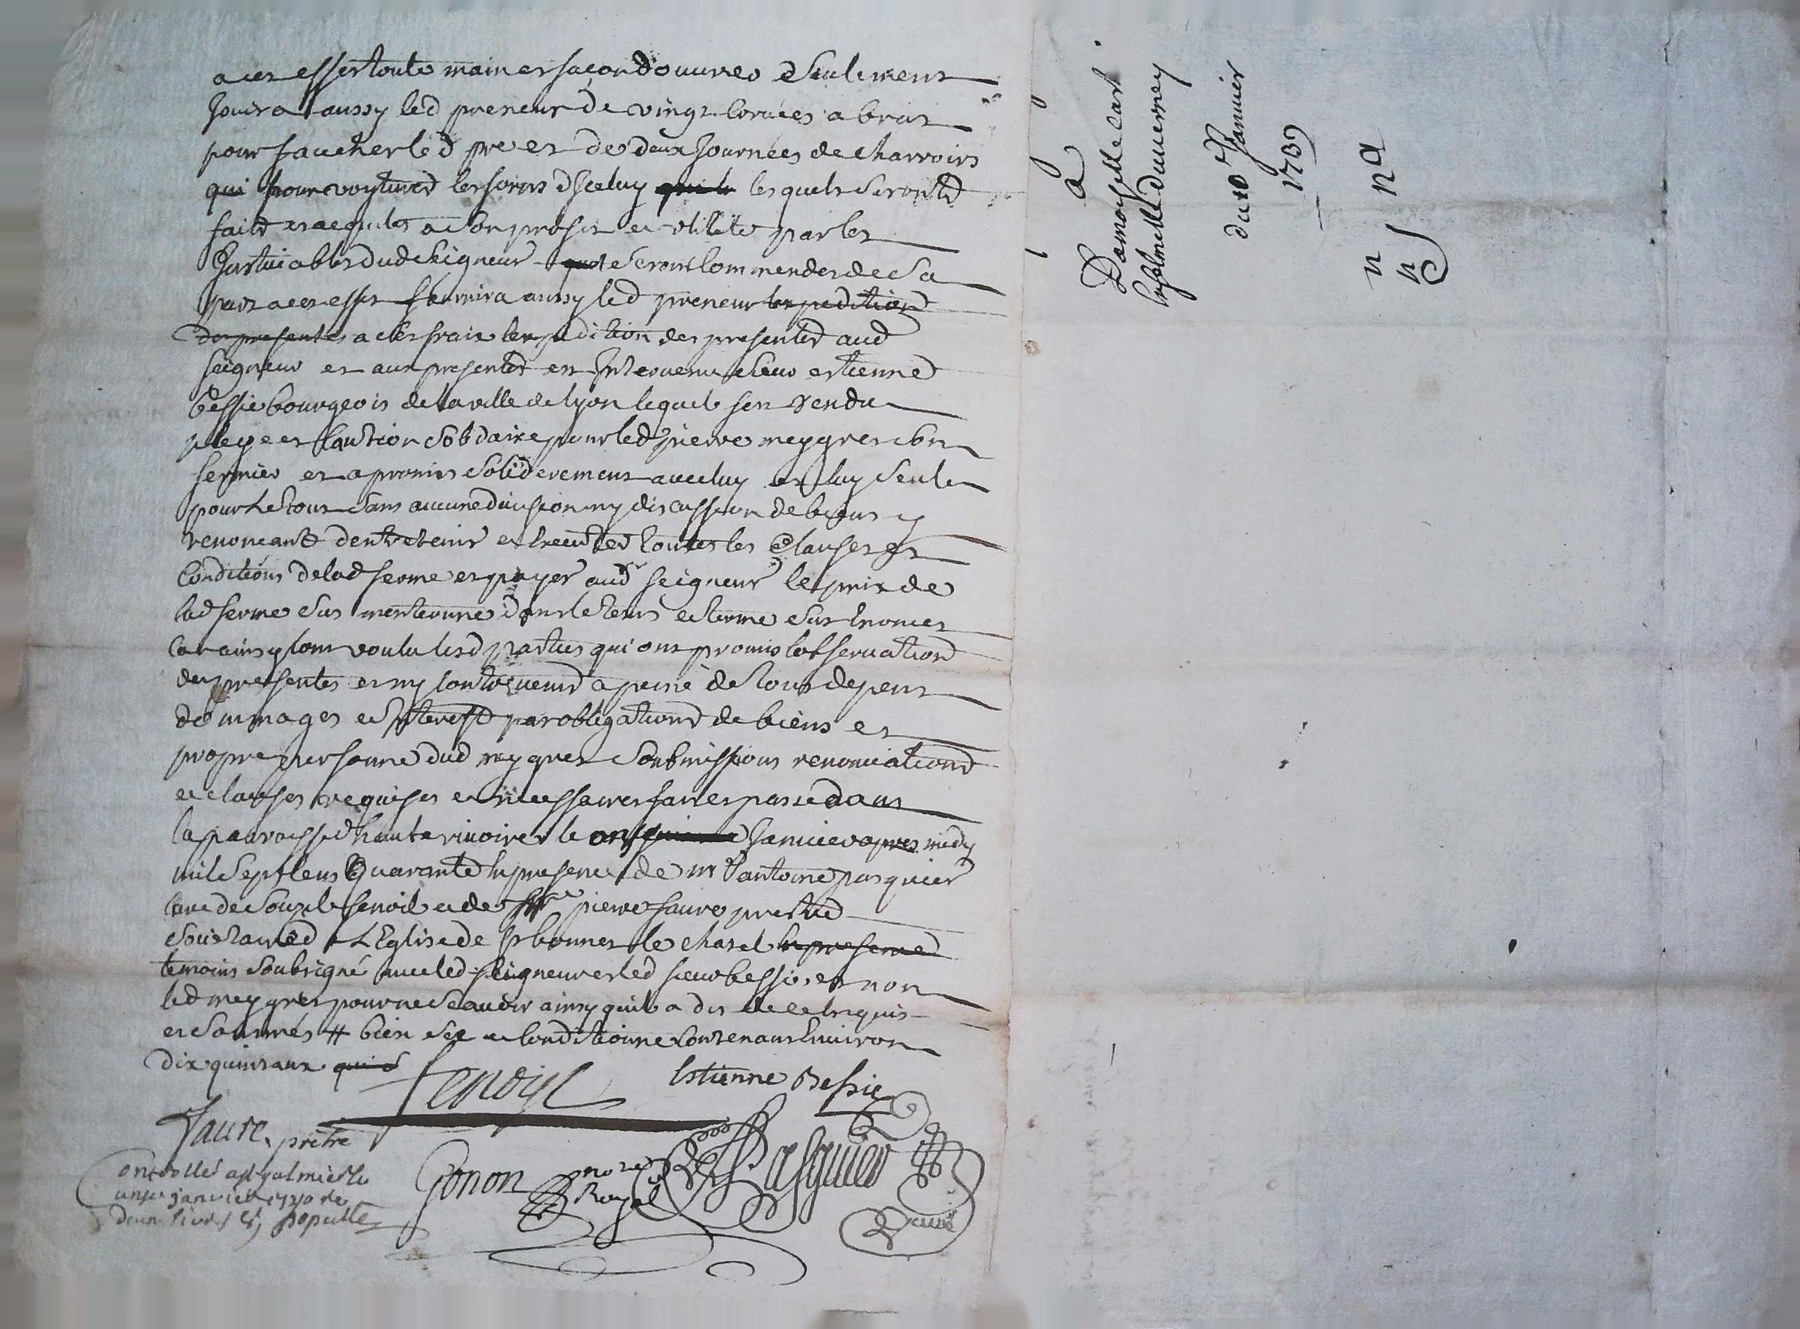 a ces effes toute main et façon d'ouvres seulement
Jouira aussy led preneur de vingt corvées a bras
pour faucher led pre et de deux Journées de charrois
qui pour voyturer les foins d'Iceluy lesquels seront
faits et acquités a son profit et utilité par les
Justiciables dud seigneur seront commendes de sa
part a ces effes fournira aussy led preneur lexpedition
des presentes a ces fraix lexpedition des presentes aud
seigneur et aux presentes est Intervenu sieur estienne
bessie bourgeois de la ville de lyon lequel sest rendu
pleige et caution solidaire pour led pierre meygret son
fermier et a promis soliderement avec luy et luy seul
pour le tout sans aucune division ny discussion de biens y
renoncant d'entretenir et executer toutes les clauses et
conditions de lad ferme et payer aud seigneur le prix de
lad ferme sus mentionné dans le tems et terme sus enoncer
car ainsy lont voulu lesd parties qui ont promis lobservation
des presentes et ny contrevenir a peine de tous depens
dommages et Interest par obligations de biens et
propre personne dud meygret soubmissions renonciations
et clauses requises et necessaires fait et passé dans
la parroisse d'hauterivoire le Janvier apres midy
mil sept cens quarante en presence de mre antoine pasquier
curé de et de pierre faure prestre
L'Eglise de st bonnet le
temoins soubsigné avec led seigneur et led sieur bessie et non
led meygret pour ne scavoir ainsy quil a dit de ce enquis
et sommés # bien sec et conditionné contenant environ
dix quintaux
fenoyl Estienne Bessie
faure, prêtre
Gonon nore Royal Pasquier
Curé
Controllé a st galmier le
unze janvier 1740 Re
deux livres
Damoyselle
du 10 Janvier
1739